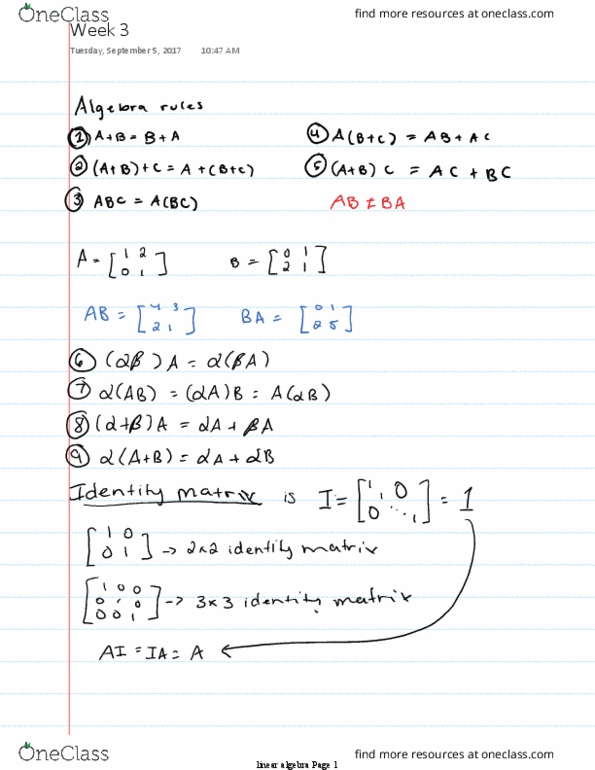 OneClass find more resources at oneclass.com
Week 3
Tuesday, September 5, 2017 10:47 AM
Algebra rules
① A+B = B+A ④ A(B+C) = AB + AC
② (A+B)+C = A+(B+C) ⑤ (A+B)C = AC + BC
③ ABC = A(BC) AB ≠ BA
A = [1 2; 0 1] B = [0 1; 2 1]
AB = [4 3; 2 1] BA = [0 1; 2 5]
⑥ (αβ)A = α(βA)
⑦ α(AB) = (αA)B = A(αB)
⑧ (α+β)A = αA + βA
⑨ α(A+B) = αA + αB
Identity matrix is I = [1 1 0; 0 ⋱ 1] = 1
[1 0; 0 1] → 2x2 identity matrix
[1 0 0; 0 1 0; 0 0 1] → 3x3 identity matrix
AI = IA = A
OneClass find more resources at oneclass.com
linear algebra Page 1